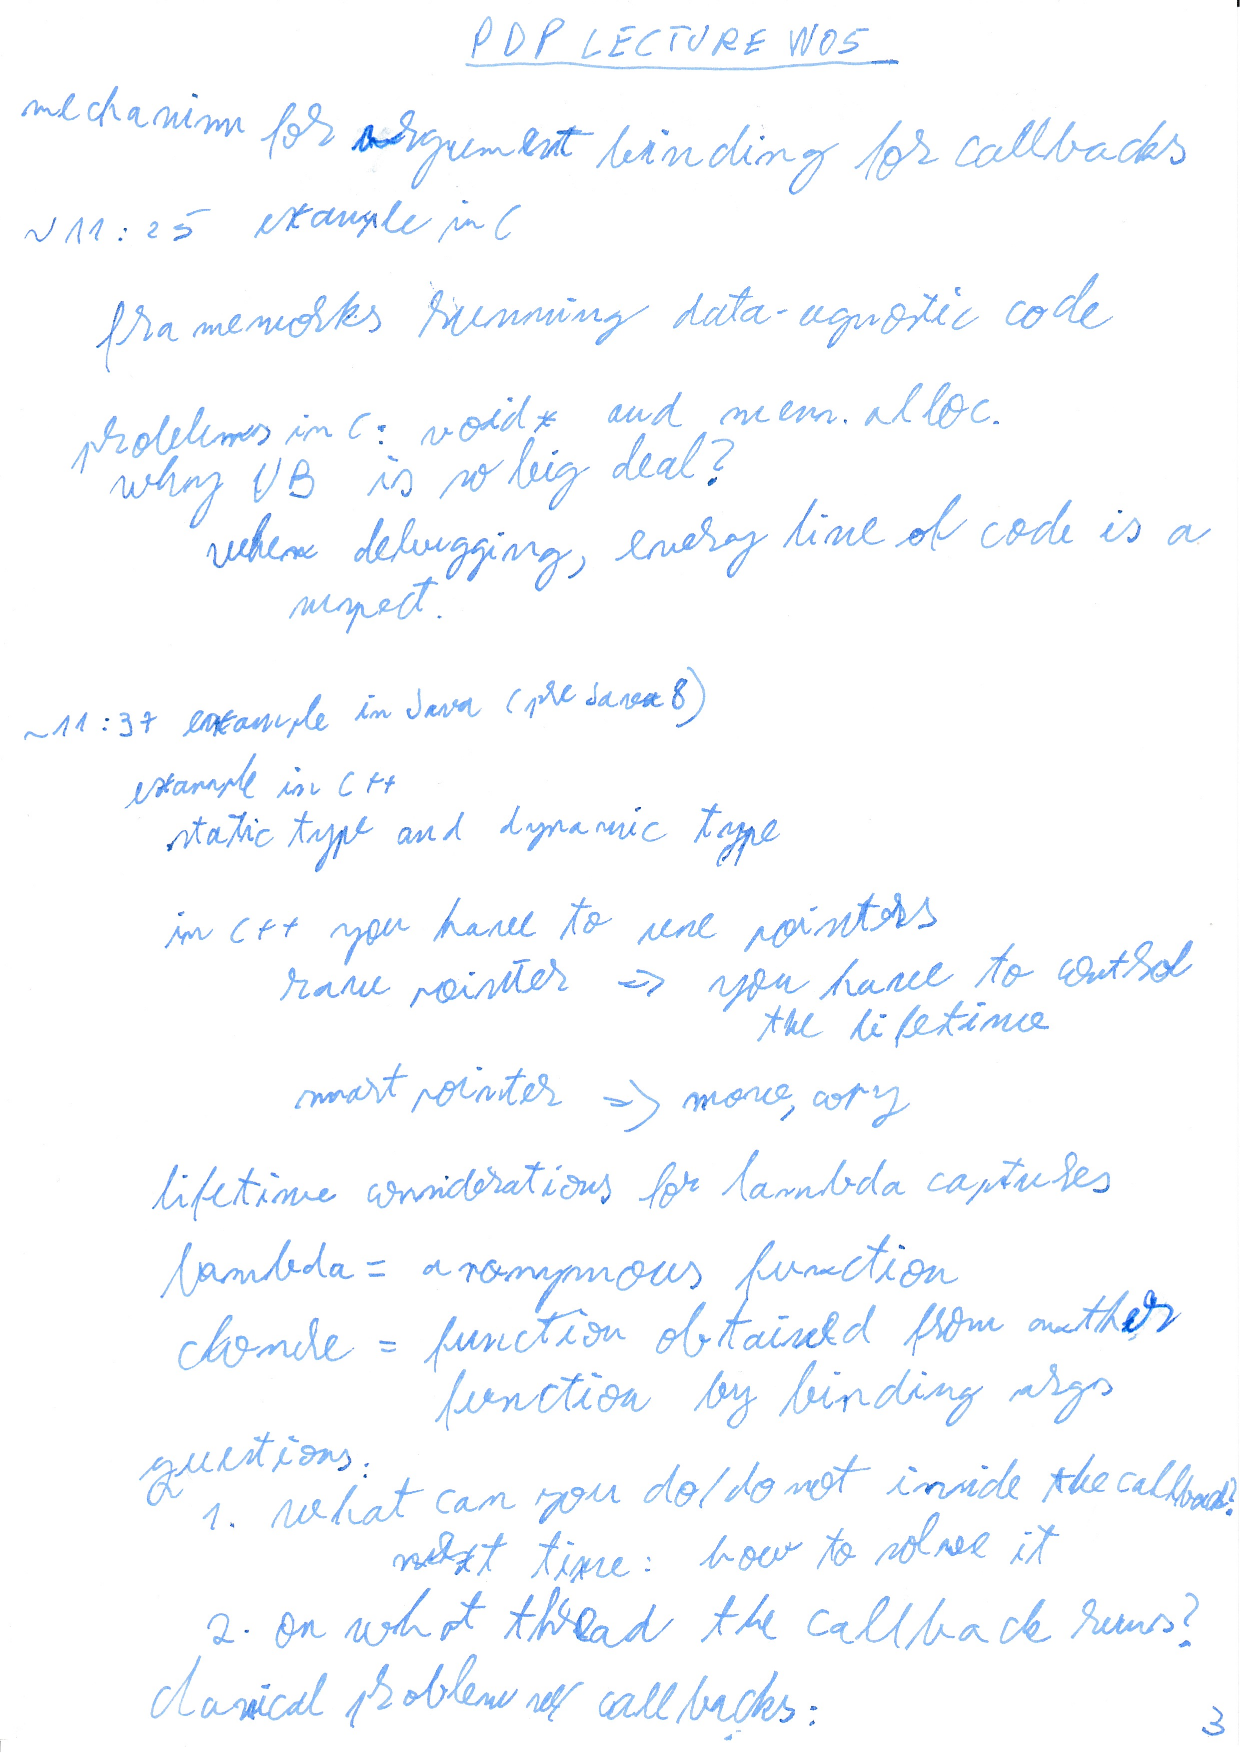 PDP LECTURE W05
mechanism for argument binding for callbacks
~11:25 example in C
frameworks running data-agnostic code
problems in C: void* and mem. alloc.
why UB is so big deal?
when debugging, every line of code is a
suspect.
~11:37 example in Java (pre Java 8)
example in C++
static type and dynamic type
in C++ you have to use pointers
raw pointer => you have to control
the lifetime
smart pointer => move, copy
lifetime considerations for lambda captures
lambda = anonymous function
closure = function obtained from another
function by binding args
questions:
1. what can you do/do not inside the callback?
next time: how to solve it
2. on what thread the callback runs?
classical problem w/ callbacks:
3